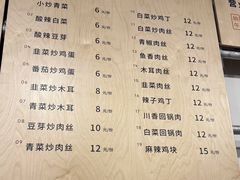 小炒青菜 6 元/份
02 酸辣白菜 6 元/份
03 酸辣豆芽 6 元/份
04 韭菜炒鸡蛋 8 元/份
05 番茄炒鸡蛋 8 元/份
06 韭菜炒木耳 8 元/份
07 青菜炒木耳 8 元/份
08 豆芽炒肉丝 10 元/份
09 青菜炒肉丝 12 元/份
白菜炒鸡丁 12 元/份
白菜炒肉丝 12 元/份
青椒肉丝 12 元/份
鱼香肉丝 12 元/份
木耳肉丝 12 元/份
韭菜肉丝 12 元/份
16 辣子鸡丁 12 元/份
17 川香回锅肉 12 元/份
18 白菜回锅肉 12 元/份
19 麻辣鸡块 15 元/份